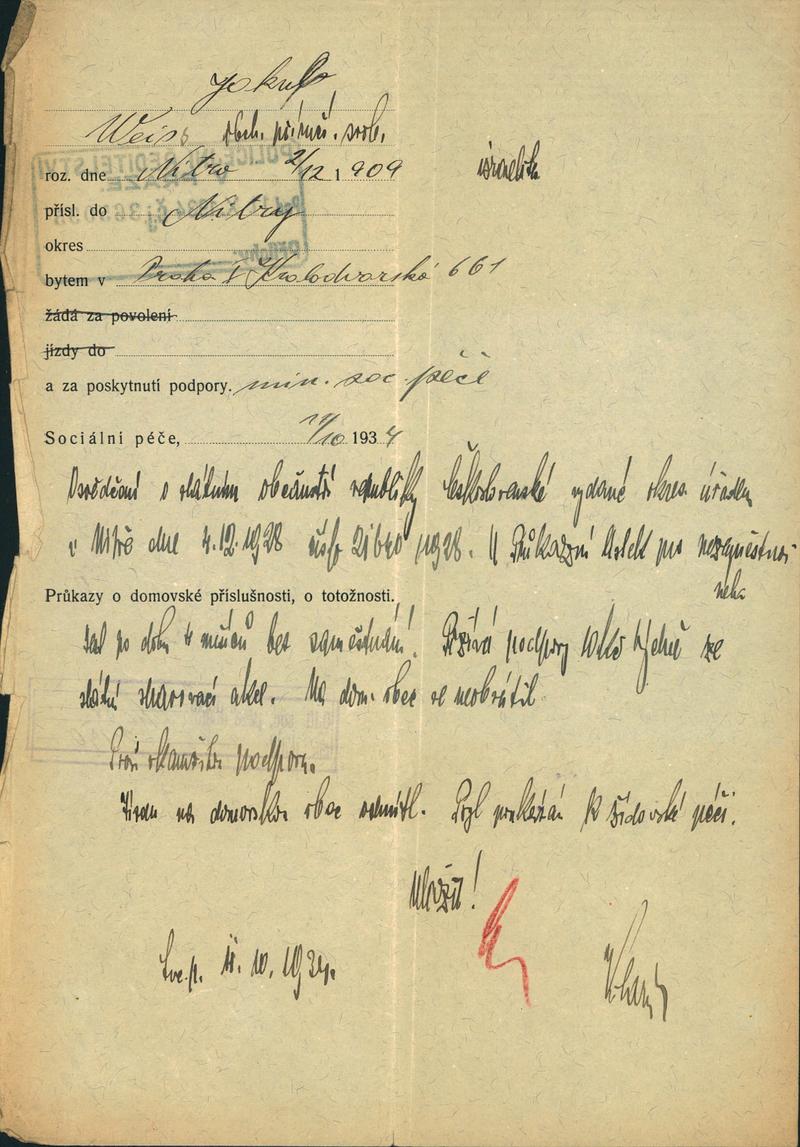 Jakub
Weiss obch. příruč. svob.
israelit.
roz. dne Nitra 2/12 1909
přísl. do Nitry
okres
bytem v Praha I Královdvorská 661
žádá za povolení
jízdy do
a za poskytnutí podpory. min. soc. péče
Sociální péče, 11/10 1934
Osvědčení o státním občanství republiky Československé vydané okres. úřadem
v Nitře dne 4.12.1928 21640/1928. Průkazní
Průkazy o domovské příslušnosti, o totožnosti.
po dobu měsíců bez zaměstnání. podpory týdně ze
státní stravovací akce. Na dom. obec se neobrátil.
Prosí podporu.
na domovskou obec odmítl. Byl poukázán k židovské péči.
Uložiti!
11. 10. 1934.